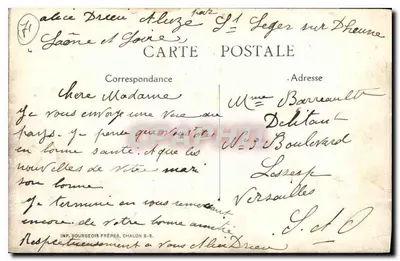 71
alice Drieu Aluze par St Leger sur Dheune
Saône et Loire
CARTE POSTALE
Correspondance
Adresse
Chere Madame
Je vous envoye une vue du
pays. Je pense que vous êtes
en bonne santé. A que les
nouvelles de votre mari
son bonne.
Je termine en vous remerciant
encore de votre bonne amitié
Respectueusement a vous Alice Drieu
Mme Barreault
Debitant
No 3 Boulevard
Lesseps
Versailles
S. et O
IMP. BOURGEOIS FRÈRES, CHALON S-S.